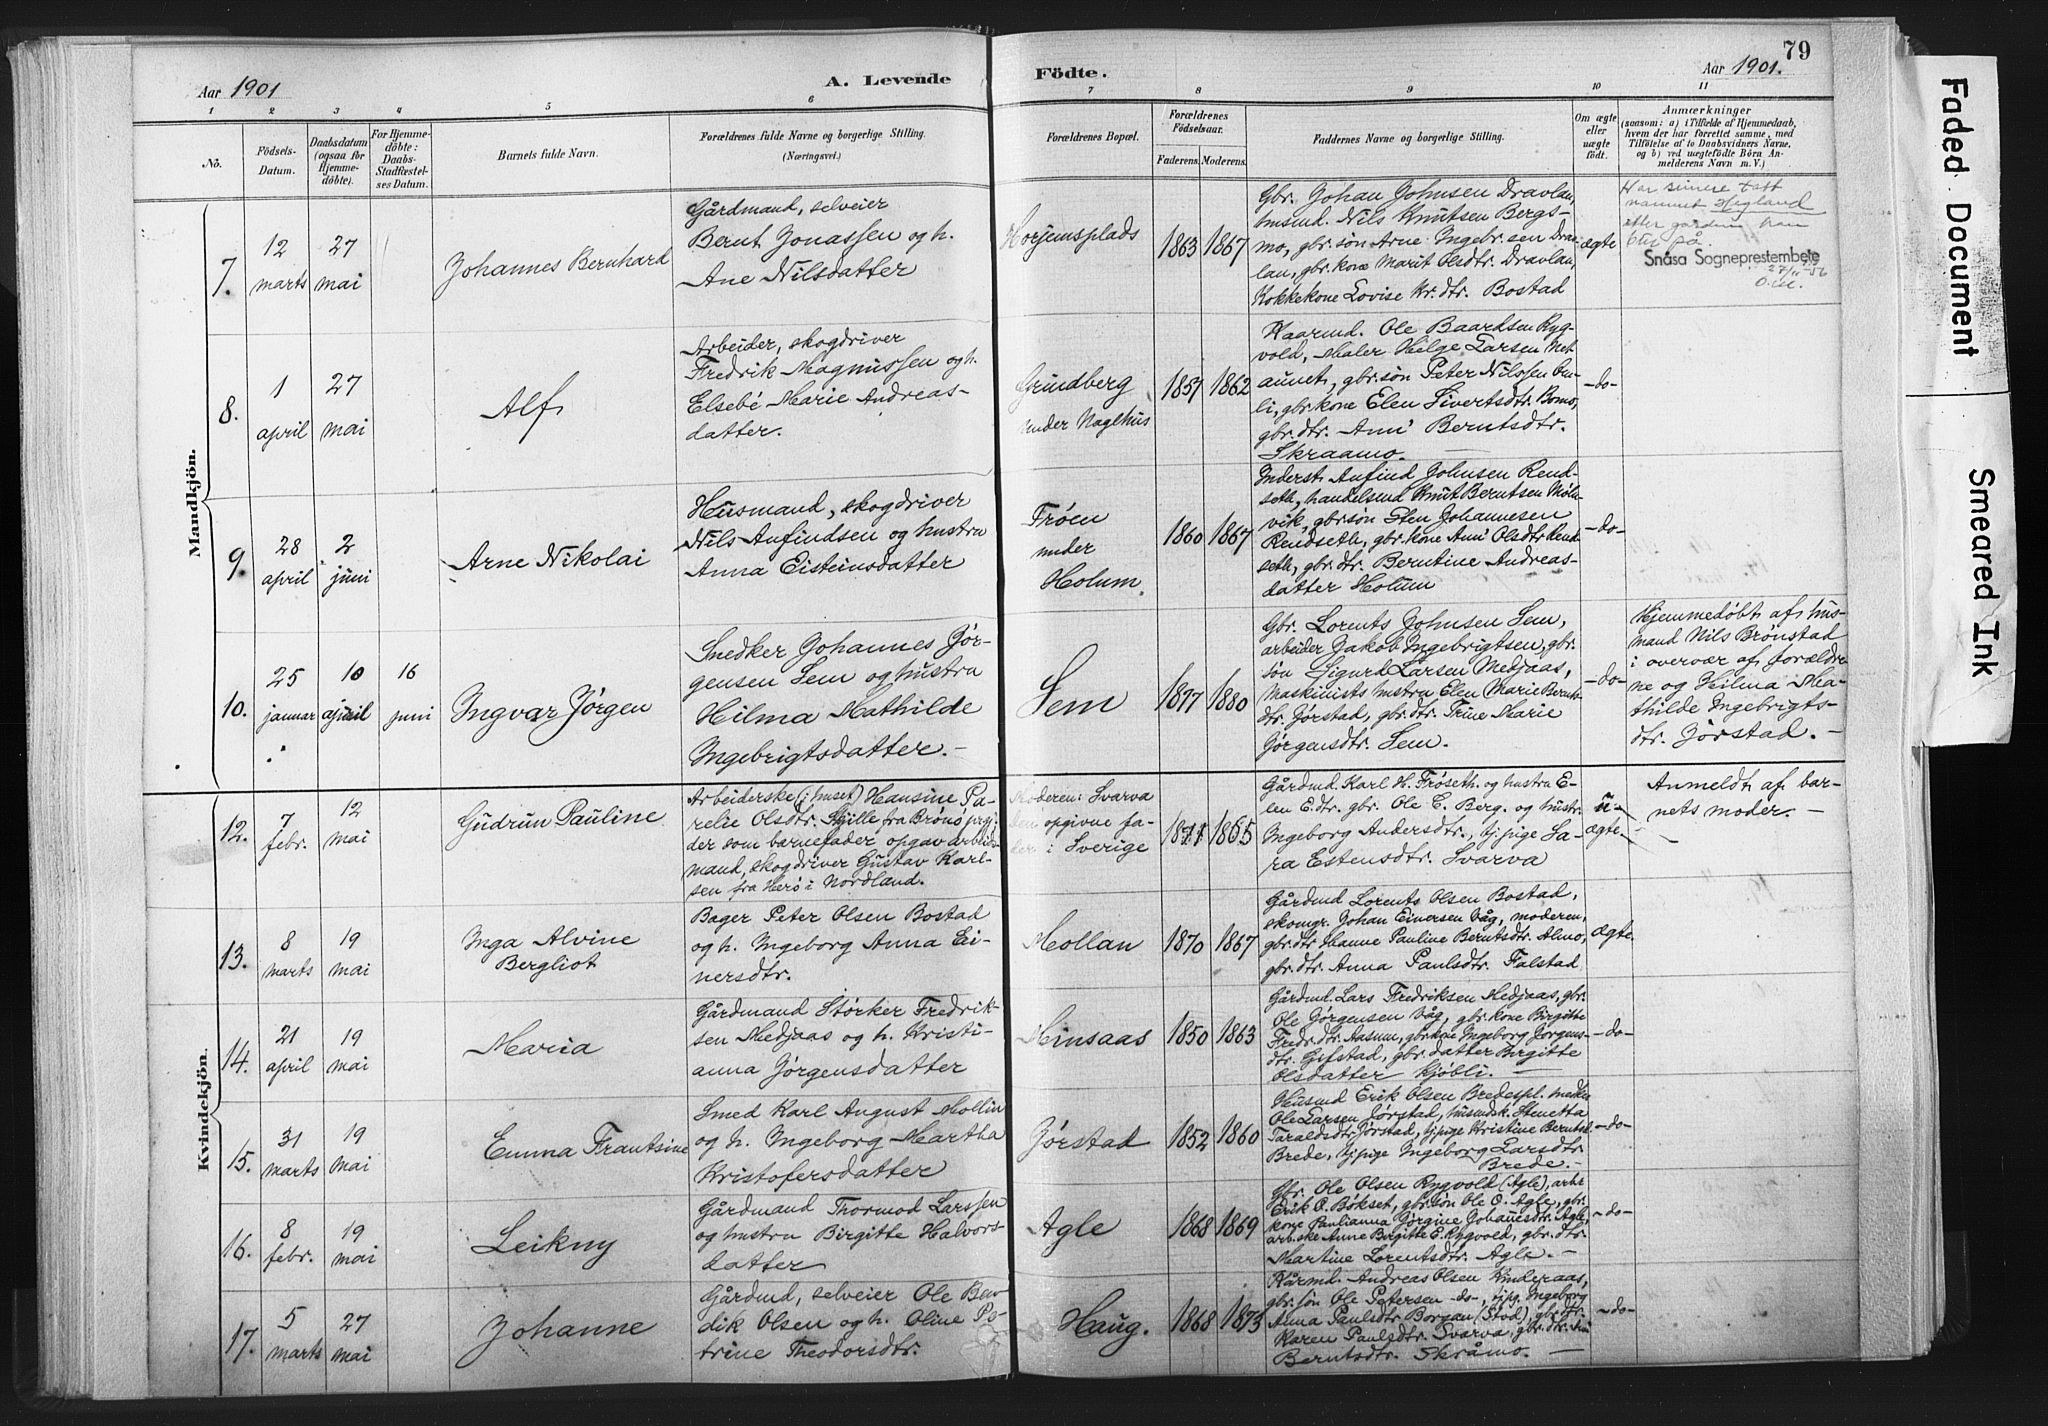 79
Aar 1901
A. Levende
Födte.
Aar 1901.
1 2 3 4 5 6 7 8 9 10 11
No.
Födsels-
Datum.
Daabsdatum
(ogsaa for
Hjemme-
döbte).
For Hjemme-
döbte:
Daabs-
Stadfæstel-
ses Datum.
Barnets fulde Navn.
Forældrenes fulde Navne og borgerlige Stilling.
(Næringsvei.)
Forældrenes Bopæl.
Forældrenes
Födselsaar.
Faderens.
Moderens.
Faddernes Navne og borgerlige Stilling.
Om ægte
eller
uægte
födt.
Anmærkninger
(saasom: a) i Tilfælde af Hjemmedaab,
hvem der har forrettet samme, med
Tilföielse af to Daabsvidners Navne,
og b) ved uægtefödte Börn An-
melderens Navn m. V.)
Mandkjön.
7.
12
marts
27
mai
Johannes Bernhard
Gårdmand, selveier
Bernt Jonassen og h.
Ane Nilsdatter
Horjemsplads
1863
1867
Gbr. Johan Johnsen Dravlan,
husmd. Nils Knutsen Bergs-
mo, gbr. søn Arne Ingebr.sen Drav-
lan, gbr. kone Marit Olsdtr. Dravlan,
Kokkekone Lovise Kr.dtr. Bostad
ægte
Har senere tatt
navnet Hegland
etter gården han
Snåsa Sogneprestembete
27/11-56
8.
1
april
27
mai
Alf
Arbeider, skogdriver
Fredrik Magnussen og h.
Elsebé Marie Andreas-
datter.
Grindberg
under Naglhus
1857
1862
Kaarmd. Ole Baardsen Ryg-
vold, Maler Helge Larsen Met-
aunet, gbr. søn Peter Nilssen Om-
li, gbr. kone Elen Sivertsdtr. Bomo,
gbr. dtr. Anni Berntsdtr.
Skraamo.
-do-
9.
28
april
2
juni
Arne Nikolai
Husmand, skogdriver
Nils Anfindsen og hustru
Anna Eisteinsdatter
Frøen
under
Holum.
1860
1867
Inderst Anfind Johnsen Rend-
seth, handelsmd Knut Berntsen Møln-
vik, gbr. søn Sten Johannesen
Rendseth, gbr. kone Anni Olsdtr Rend-
seth, gbr. dtr. Berntine Andreas-
datter Holum
-do-
10.
25
januar
10
april
16
juni
Ingvar Jørgen
Snedker Johannes Jør-
gensen Sem og hustru
Hilma Mathilde
Ingebrigtsdatter. -
Sem
1877
1880
Gbr. Lorents Johnsen Sem,
arbeider Jakob Ingebrigtsen, gbr.
søn Sigurd Larsen Medjaas,
Maskinists hustru Elen Marie Bernts-
dtr. Jørstad, gbr. dtr. Trine Marie
Jørgensdtr. Sem.
-do-
Hjemmedøbt af hus-
mand Nils Brønstad
i overvær af forældre-
ne og Hilma Ma-
thilde Ingebrigts-
dtr. Jørstad. -
Kvindekjön.
12.
7
febr.
12
mai
Gudrun Pauline
Arbeiderske (i huset) Hansine Pa-
relie Olsdtr. Skille fra Brønø prgj.
der som barnefader opgav arbeids-
mand, skogdriver Gustav Karl-
sen fra Herø i Nordland.
Moderen: Svarva
den opgivne fa-
der i Sverige
1871
1865
Gårdmd. Karl H. Frøseth. og hustru E-
len E.dtr. gbr. Ole E. Berg. og hustr.
Ingeborg Andersdtr., tj. pige Sa-
ra Estensdtr. Svarva
u-
ægte.
Anmeldt af bar-
nets moder. -
13.
8
marts
19
mai
Inga Alvine
Bergliot
Bager Peter Olsen Bostad
og h. Ingeborg Anna Ei-
nersdtr.
Mollan
1870
1867
Gårdmd Lorents Olsen Bostad,
skomgr. Johan Einersen Våg, moderen,
gbr. dtr Hanne Pauline Berntsdtr. Almo,
gbr. dtr. Anna Paulsdtr. Falstad
ægte.
14.
21
april
19
mai
Maria
Gårdmand Størker Fredrik-
sen Medjaas og h. Kristi-
anna Jørgensdatter
Minsaas
1850
1863
Gårdmd. Lars Fredriksen Medjaas, gbr.
Ole Jørgensen Våg, gbr. kone Birgitte
Fredr.dtr. Aasum, gbr.kone Ingeborg Jørgens-
dtr. Gifstad, gbr. datter Birgitte
Olsdatter Kjøbli. -
-do-
15.
31
marts
19
mai
Emma Frantsine
Smed Karl August Mollin
og h. Ingeborg Martha
Kristofersdatter
Jørstad
1852
1860
Husmd Erik Olsen Bredespl.
Ole Larsen Jørstad, husmdsk. Stenetta
Taraldsdtr Jørstad, tj. pige Kristine Berntsd.
Brede, tj. pige Ingeborg Larsdtr
Brede. -
-do-
16.
8
febr.
19
mai
Leikny
Gårdmand Thormod Larssen
og hustru Birgitte Halvors-
datter
Agle
1868
1869
Gbr. Ole Olsen Rygvold (Agle), arb.
Erik P. Bøkset, gbr. søn Ole O. Agle, gbr.
kone Paulianna Jørgine Johannesdtr. Agle,
arb.ske Anne Birgitte E. Rygvold, gbr. dtr.
Martine Lorentsdtr. Agle. -
-do-
17.
5
marts
27
mai
Johanne
Gårdmd, selveier Ole Ben-
dik Olsen og h. Oline Pe-
trine Theodorsdtr.
Haug.
1868
1873
Kårmd. Andreas Olsen Kinderaas,
gbr. søn Ole Petersen -do-, tj.pg. Ingeborg
Anna Paulsdtr Borgan (Stod), gbr. dtr.
Karen Paulsdtr. Svarva, gbr. dtr.
Berntsdtr. Skråmo. -
-do-
Faded Document
Smeared Ink